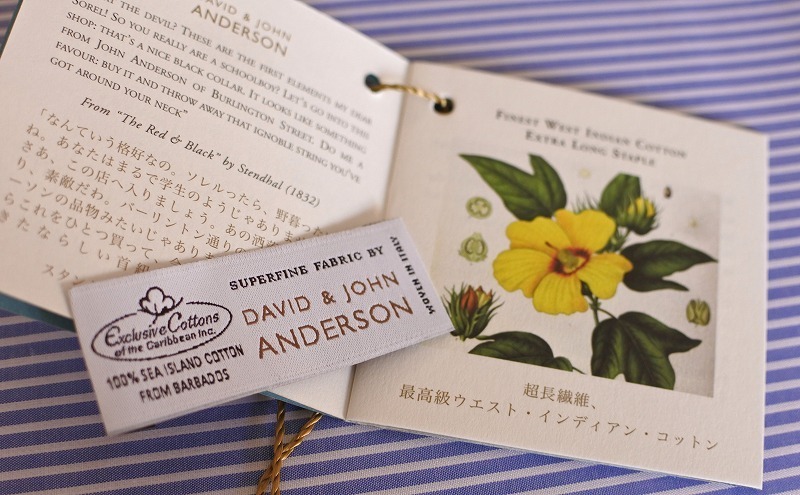 DAVID & JOHN
ANDERSON
AT THE DEVIL? THESE ARE THE FIRST ELEMENTS MY DEAR
SOREL! SO YOU REALLY ARE A SCHOOLBOY? LET'S GO INTO THIS
SHOP: THAT'S A NICE BLACK COLLAR. IT LOOKS LIKE SOMETHING
FROM JOHN ANDERSON OF BURLINGTON STREET. DO ME A
FAVOUR: BUY IT AND THROW AWAY THAT IGNOBLE STRING YOU'VE
GOT AROUND YOUR NECK"
From "The Red & Black" by Stendhal (1832)
「なんていう格好なの。ソレルったら、野暮った
ね。あなたはまるで学生のようじゃありませ
さあ、この店へ入りましょう。あの洒落
り、素敵だわ。バーリントン通りの
ーソンの品物みたいじゃありま
らこれをひとつ買って、
きたならしい首
スタン
SUPERFINE FABRIC BY
DAVID & JOHN
ANDERSON
WOVEN IN ITALY
Exclusive Cottons
of the Caribbean Inc.
100% SEA ISLAND COTTON
FROM BARBADOS
FINEST WEST INDIAN COTTON
EXTRA LONG STAPLE
超長繊維、
最高級ウエスト・インディアン・コットン